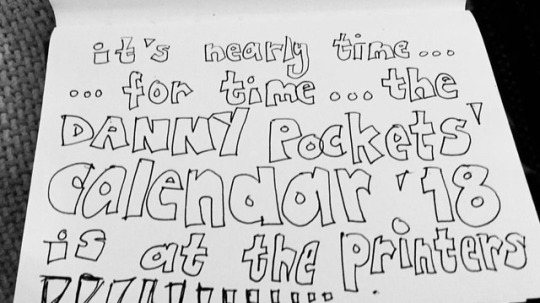 it's nearly time...
... for time... the
DANNY Pockets'
calendar '18
is at the printers
!!!!!!!!!!!...